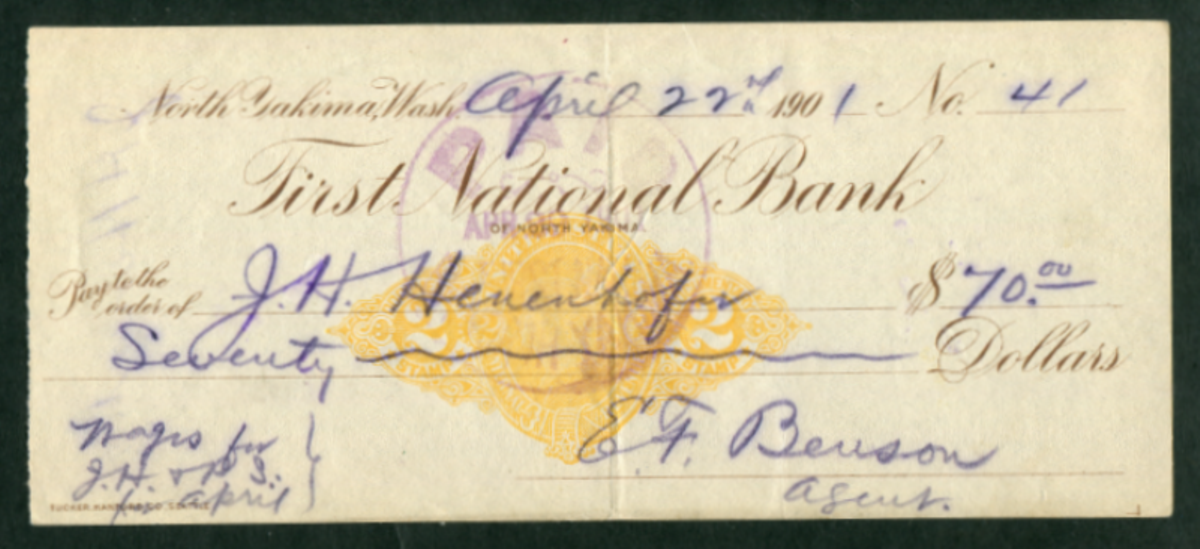 North Yakima, Wash. April 22nd 1901 No. 41
PAID
First National Bank
OF NORTH YAKIMA
Pay to the order of J. H. Heuenhofer $70.00
Seventy Dollars
2 2
STAMP STAMP
Wages for
J. H. & P. S.
April
E. F. Benson
agent.